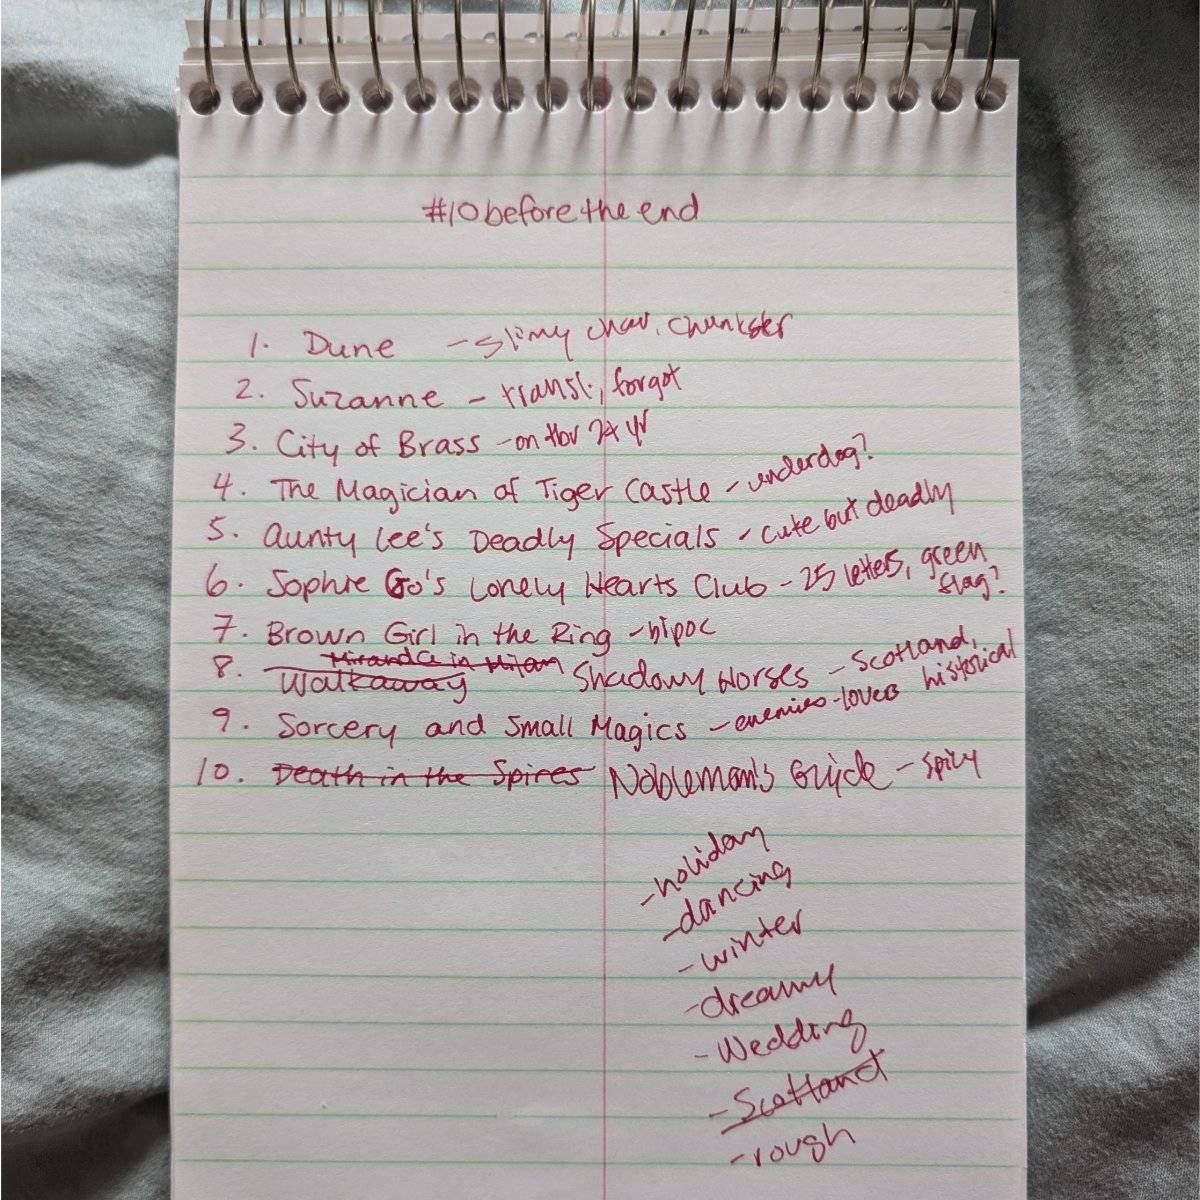 #10beforetheend
1. Dune - slimy char, chunkster
2. Suzanne - transl., forgot
3. City of Brass - on tbr 2+ yr
4. The Magician of Tiger Castle - underdog?
5. Aunty Lee's Deadly Specials - cute but deadly
6. Sophie Go's Lonely Hearts Club - 25 letters, green
flag?
7. Brown Girl in the Ring - bipoc
8. Miranda in Milan
Walkaway Shadowy Horses - Scotland,
historical
9. Sorcery and Small Magics - enemies-lovers
10. Death in the Spires Nobleman's Guide - spicy
- holiday
- dancing
- winter
- dreamy
- Wedding
- Scotland
- rough